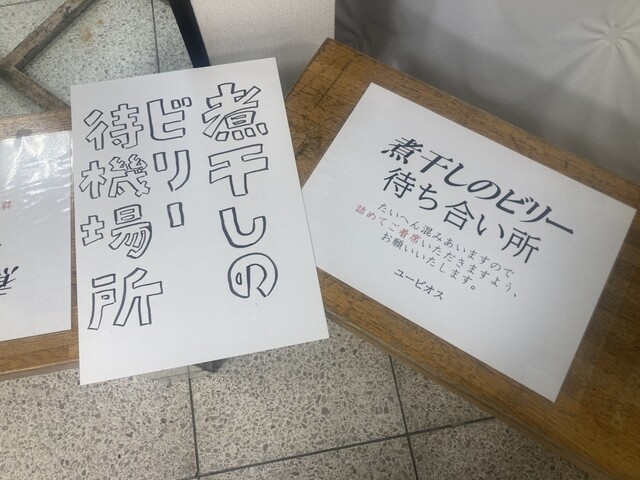 煮干しの
ビリー
待機場所
煮干しのビリー
待ち合い所
たいへん混みあいますので
詰めてご着席いただきますよう、
お願いいたします。
ユーピオス